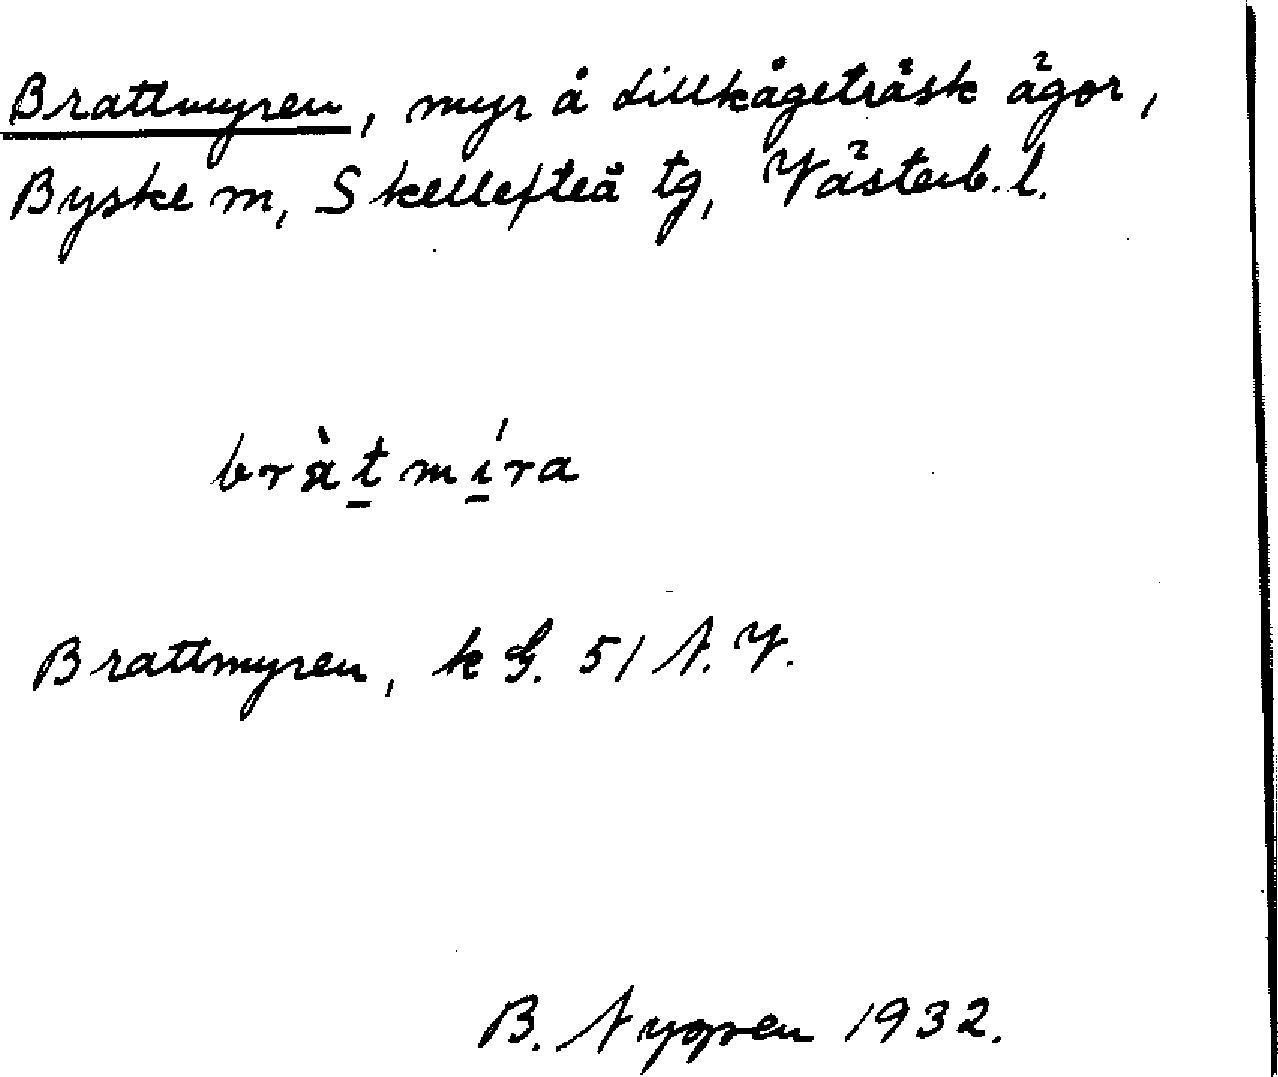 Brattmyren, myr å Lillkågeträsk ägor,
Byske sn, Skellefteå tg, Västerb. l.
bràt̲mí̲ra
Brattmyren, k G. 51 N. V.
B. Nygren 1932.